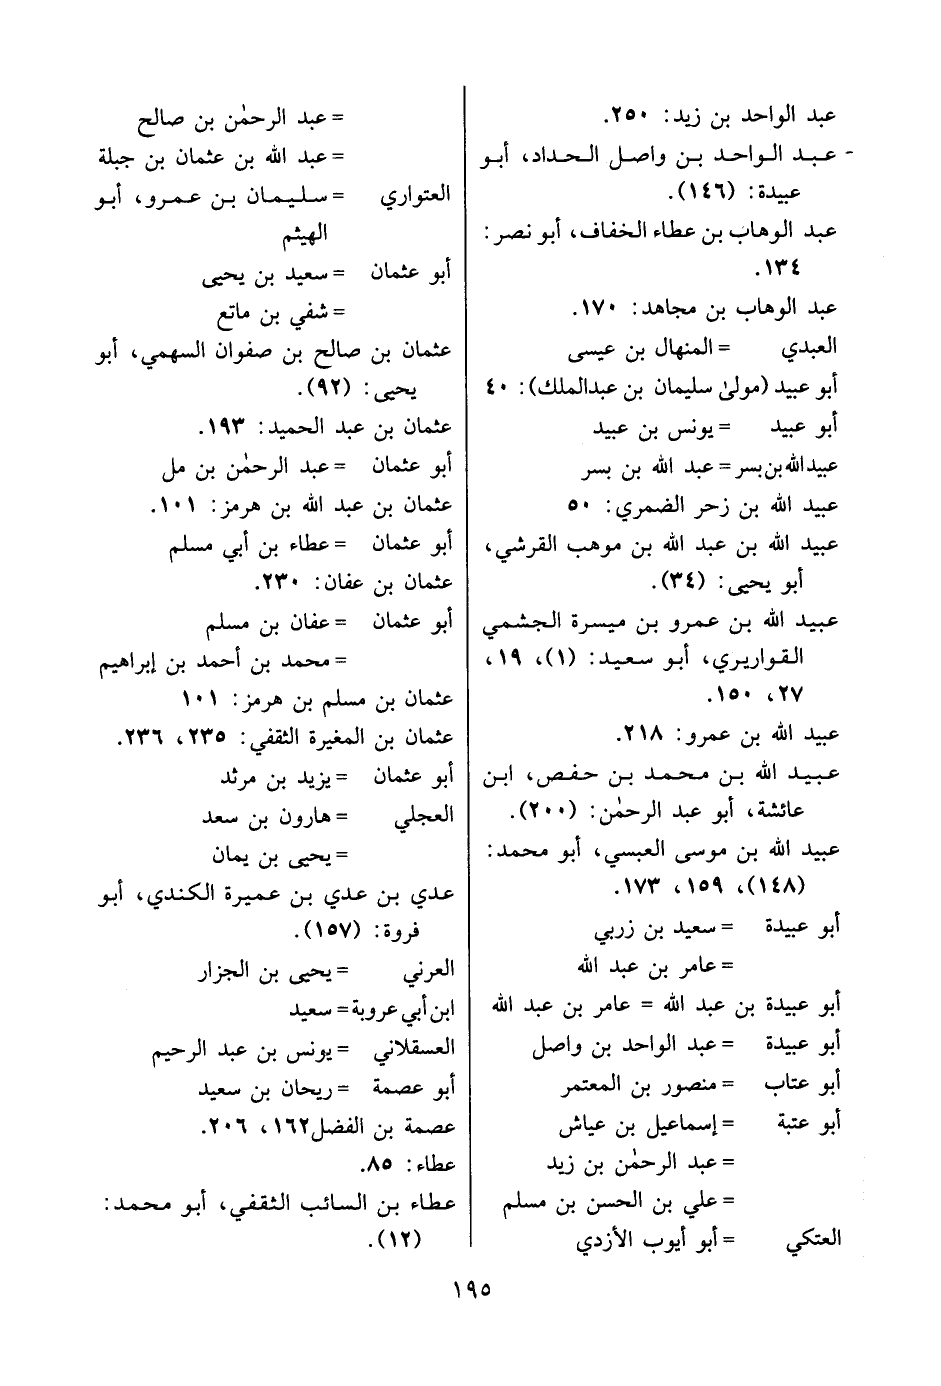 عبد الواحد بن زيد: ٢٥٠.
- عبد الواحد بن واصل الحداد، أبو
عبيدة: (١٤٦).
عبد الوهاب بن عطاء الخفاف، أبو نصر:
١٣٤.
عبد الوهاب بن مجاهد: ١٧٠.
العبدي = المنهال بن عيسى
أبو عبيد (مولىٰ سليمان بن عبدالملك): ٤٠
أبو عبيد = يونس بن عبيد
عبيدالله بن بسر = عبد الله بن بسر
عبيد الله بن زحر الضمري: ٥٠
عبيد الله بن عبد الله بن موهب القرشي،
أبو يحيى: (٣٤).
عبيد الله بن عمرو بن ميسرة الجشمي
القواريري، أبو سعيد: (١)، ١٩،
٢٧، ١٥٠.
عبيد الله بن عمرو: ٢١٨.
عبيد الله بن محمد بن حفص، ابن
عائشة، أبو عبد الرحمٰن: (٢٠٠).
عبيد الله بن موسى العبسي، أبو محمد:
(١٤٨)، ١٥٩، ١٧٣.
أبو عبيدة = سعيد بن زربي
= عامر بن عبد الله
أبو عبيدة بن عبد الله = عامر بن عبد الله
أبو عبيدة = عبد الواحد بن واصل
أبو عتاب = منصور بن المعتمر
أبو عتبة = إسماعيل بن عياش
= عبد الرحمٰن بن زيد
= علي بن الحسن بن مسلم
العتكي = أبو أيوب الأزدي
= عبد الرحمٰن بن صالح
= عبد الله بن عثمان بن جبلة
العتواري = سليمان بن عمرو، أبو
الهيثم
أبو عثمان = سعيد بن يحيى
= شفي بن ماتع
عثمان بن صالح بن صفوان السهمي، أبو
يحيى: (٩٢).
عثمان بن عبد الحميد: ١٩٣.
أبو عثمان = عبد الرحمٰن بن مل
عثمان بن عبد الله بن هرمز: ١٠١.
أبو عثمان = عطاء بن أبي مسلم
عثمان بن عفان: ٢٣٠.
أبو عثمان = عفان بن مسلم
= محمد بن أحمد بن إبراهيم
عثمان بن مسلم بن هرمز: ١٠١
عثمان بن المغيرة الثقفي: ٢٣٥، ٢٣٦.
أبو عثمان = يزيد بن مرثد
العجلي = هارون بن سعد
= يحيى بن يمان
عدي بن عدي بن عميرة الكندي، أبو
فروة: (١٥٧).
العرني = يحيى بن الجزار
ابن أبي عروبة = سعيد
العسقلاني = يونس بن عبد الرحيم
أبو عصمة = ريحان بن سعيد
عصمة بن الفضل١٦٢، ٢٠٦.
عطاء: ٨٥.
عطاء بن السائب الثقفي، أبو محمد:
(١٢).
١٩٥